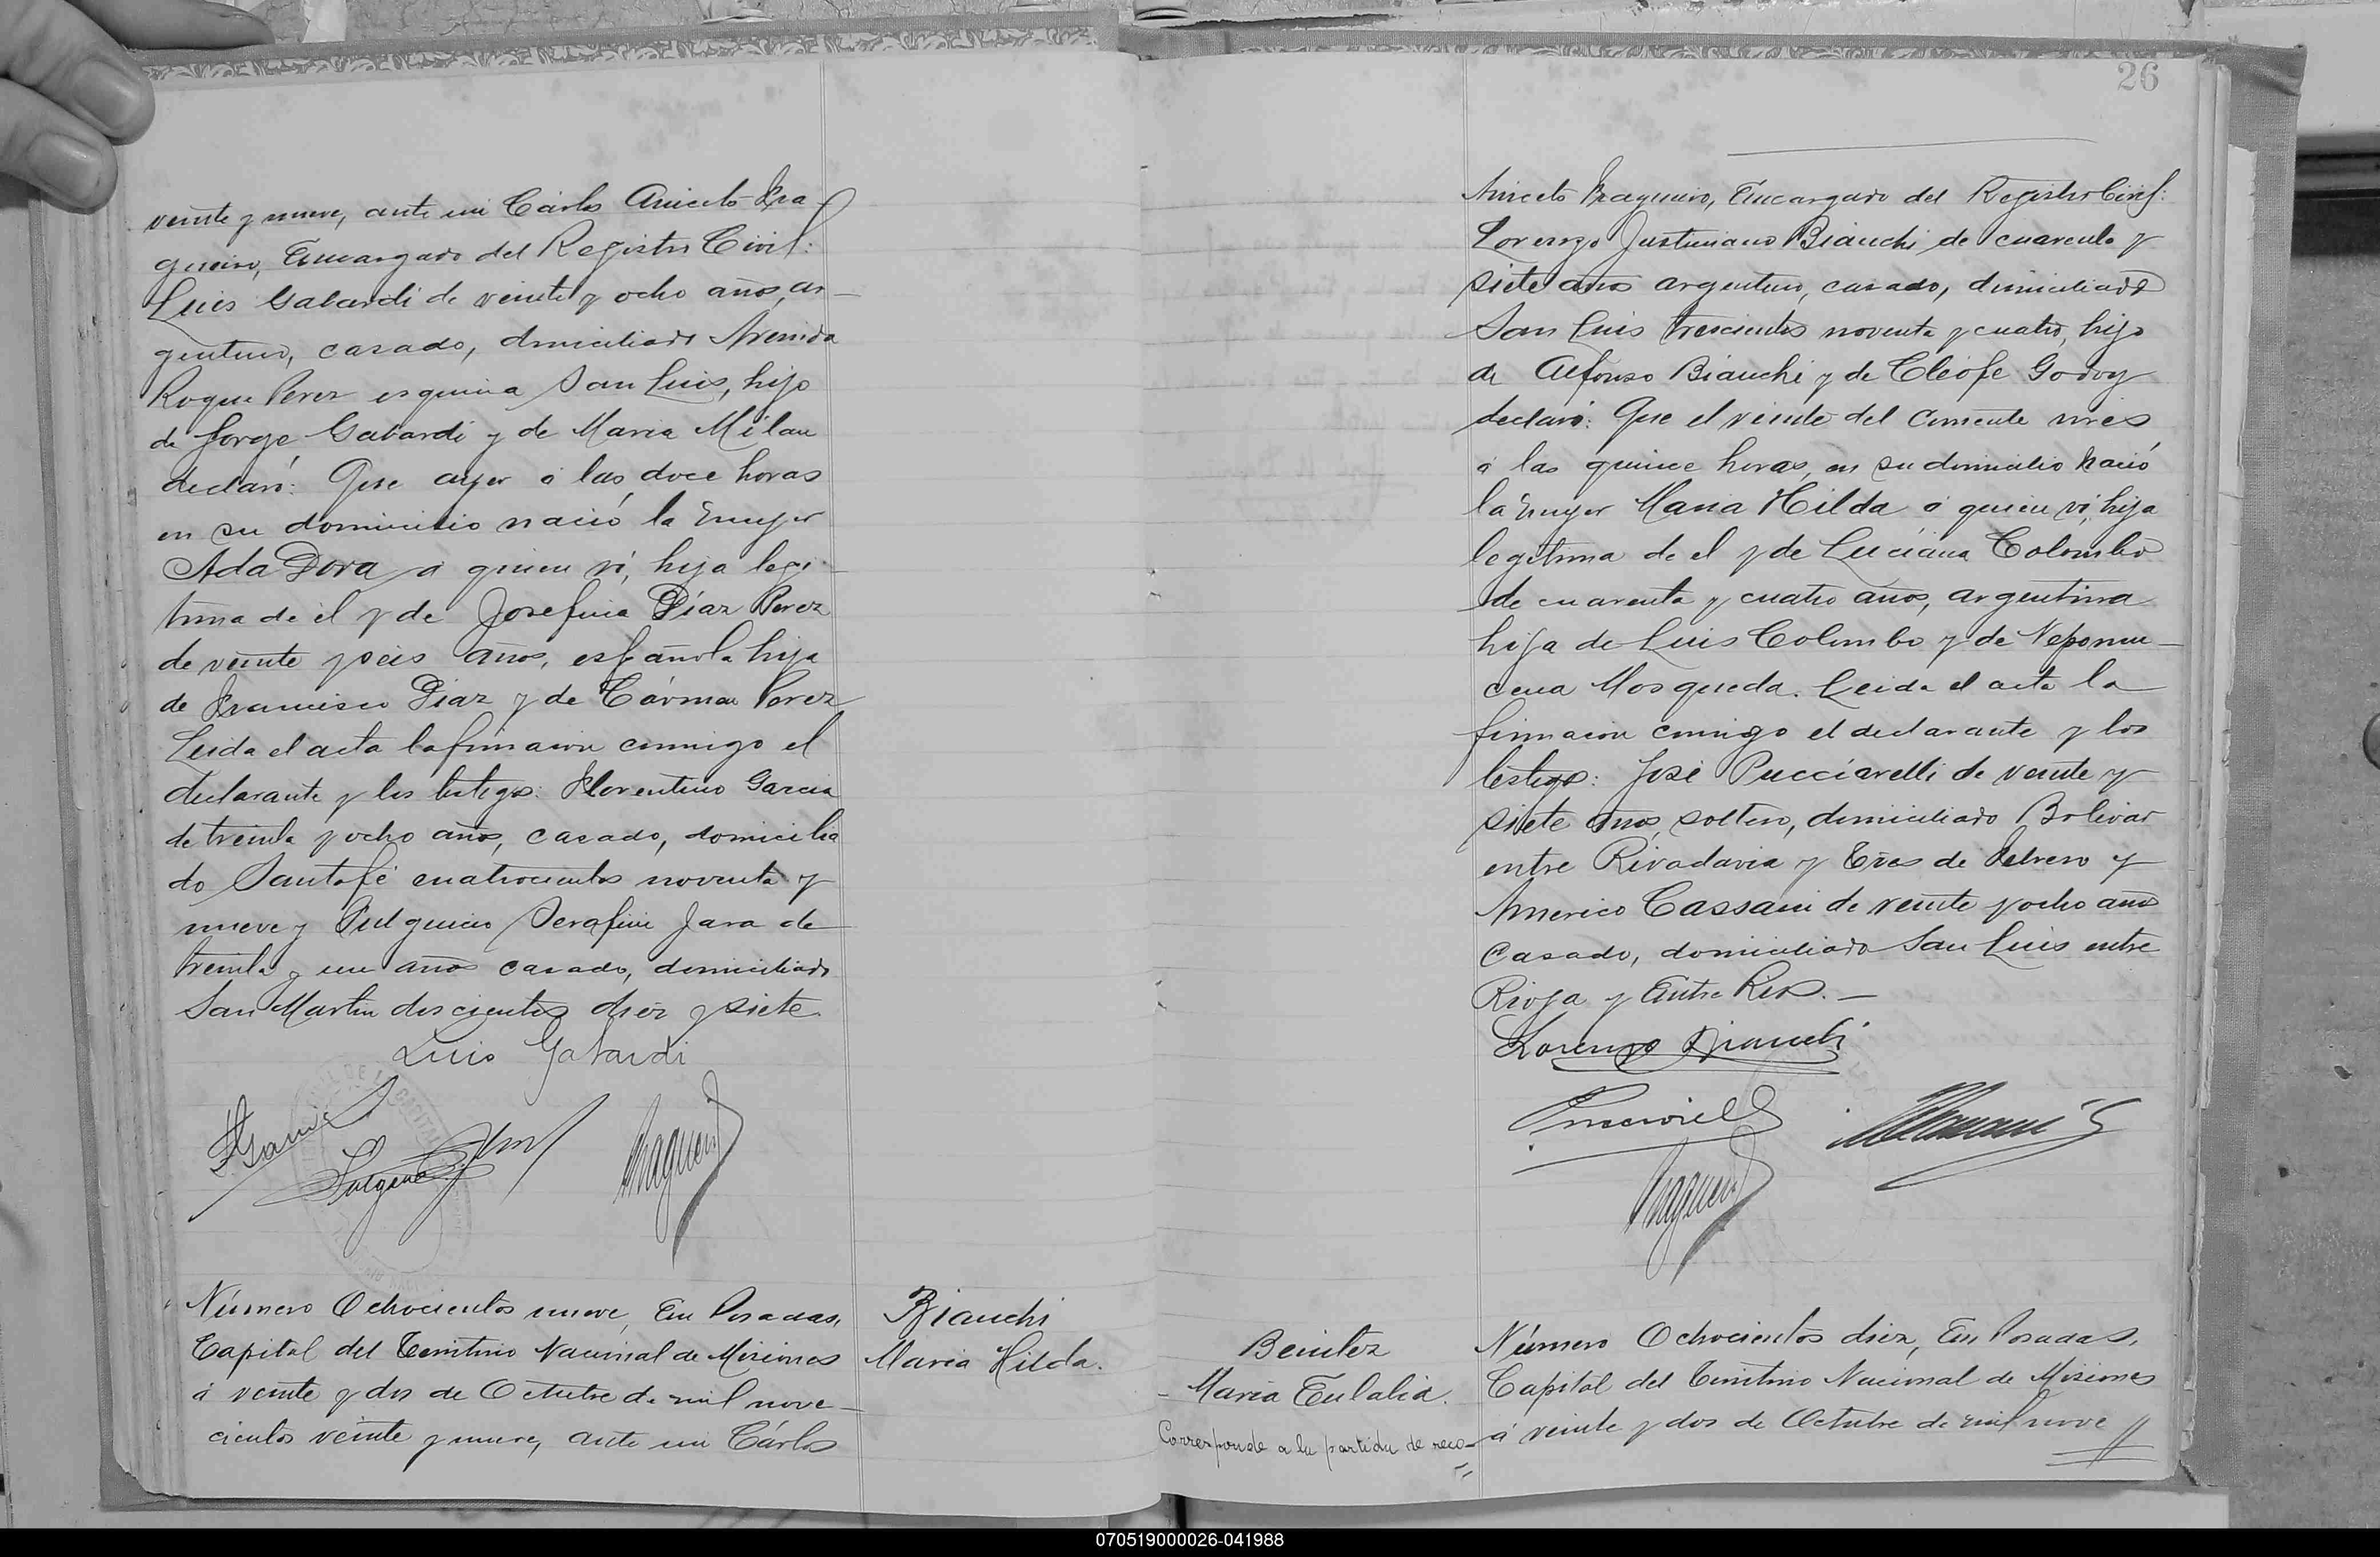 veinte y nueve, ante mi Cárlos Aniceto Fra-
gueiro, Encargado del Registro Civil:
Luis Gabardi de veinte y ocho años, ar-
gentino, casado, domiciliado Avenida
Roque Perez esquina San Luis, hijo
de Jorge Gabardi y de Maria Milan
declaró: Que ayer á las doce horas
en su domicilio nació la mujer
Ada Dora á quien ví, hija legi-
tima de él y de Josefina Díaz Perez
de veinte y seis años, española hija
de Francisco Díaz y de Cármen Perez
Leida el acta la firmaron conmigo el
declarante y los testigos: Florentino Garcia
de treinta y ocho años, casado, domicilia
do Santafé cuatrocientos noventa y
nueve y Fulgencio Serafin Jara de
treinta y un años casado, domiciliado
San Martin doscientos diez y siete
Luis Gabardi
Número Ochocientos nueve, En Posadas,
Capital del Territorio Nacional de Misiones
á veinte y dos de Octubre de mil nove-
cientos veinte y nueve, ante mi Cárlos
Bianchi
Maria Hilda.
26
Aniceto Fragueiro, Encargado del Registro Civil:
Lorenzo Justiniano Bianchi de cuarenta y
siete años argentino, casado, domiciliado
San Luis trescientos noventa y cuatro, hijo
de Alfonso Bianchi y de Cleófe Godoy
declaró: Que el veinte del corriente mes
á las quince horas, en su domicilio nació
la mujer Maria Hilda á quien ví, hija
legitima de el y de Luciana Colombo
de cuarenta y cuatro años, argentina
hija de Luis Colombo y de Nepomu-
cena Mosqueda. Leida el acta la
firmaron conmigo el declarante y los
testigos: José Pucciarelli de veinte y
siete años, soltero, domiciliado Bolivar
entre Rivadavia y Tres de Febrero y
Americo Cassani de veinte y ocho años
casado, domiciliado San Luis entre
Rioja y Entre Rios.—
Lorenzo Bianchi
Benitez
Maria Eulalia.
Corresponde a la partida de reco-
Número Ochocientos diez, En Posadas,
Capital del Territorio Nacional de Misiones
á veinte y dos de Octubre de mil nove //
070519000026-041988